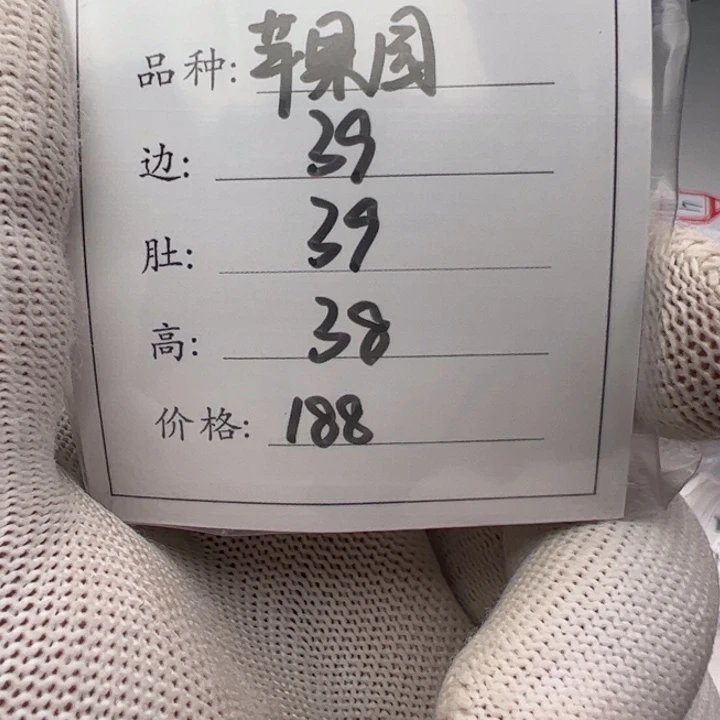 品种: 苹果园
边: 39
肚: 39
高: 38
价格: 188